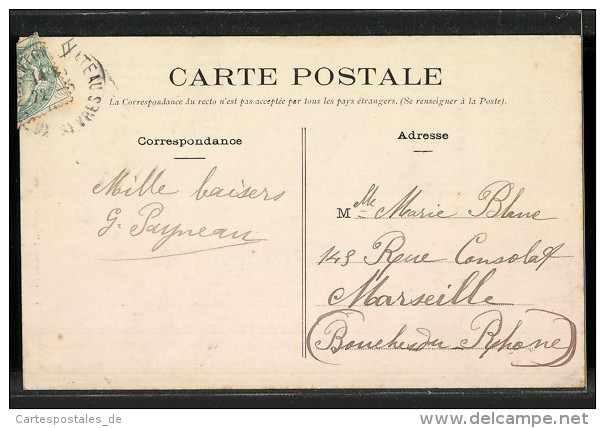 CARTE POSTALE
La Correspondance du recto n'est pas acceptée par tous les pays étrangers. (Se renseigner à la Poste).
Correspondance
Adresse
Mille baisers
G. Payneau
Mlle Marie Blanc
149 Rue Consolat
Marseille
(Bouches du Rhône)
CHATEAU
SEVRES
Cartespostales_de
delcampe.net